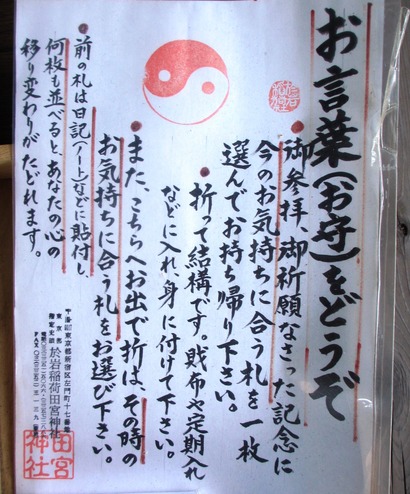 お言葉(お守)をどうぞ
御参拝、御祈願なさった記念に
今のお気持ちに合う札を一枚
選んでお持ち帰り下さい。
折って結構です。財布や定期入れ
などに入れ、身に付けて下さい。
また、こちらへお出で折は、その時の
お気持ちに合う札をお選び下さい。
前の札は日記(ノート)などに貼付し、
何枚も並べると、あなたの心の
移り変わりがたどれます。
東京都新宿区左門町十七番地
東京都
指定史跡
於岩稲荷田宮神社
田宮
神社